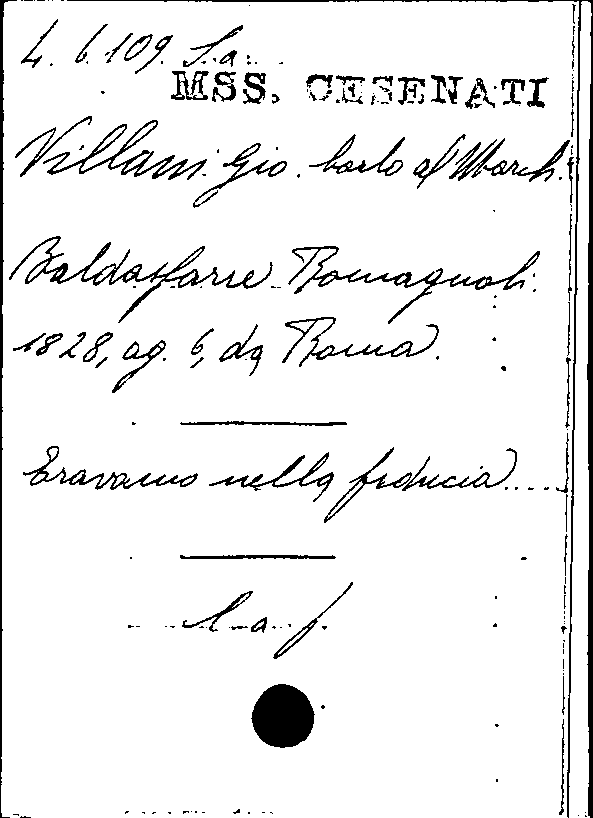 L. 6. 109. S.a.
MSS. CESENATI
Villani Gio. Carlo al March.
Baldassarre Romagnoli.
1828, ag. 6, da Roma.
Eravamo nella fiducia.....
L. a. f.